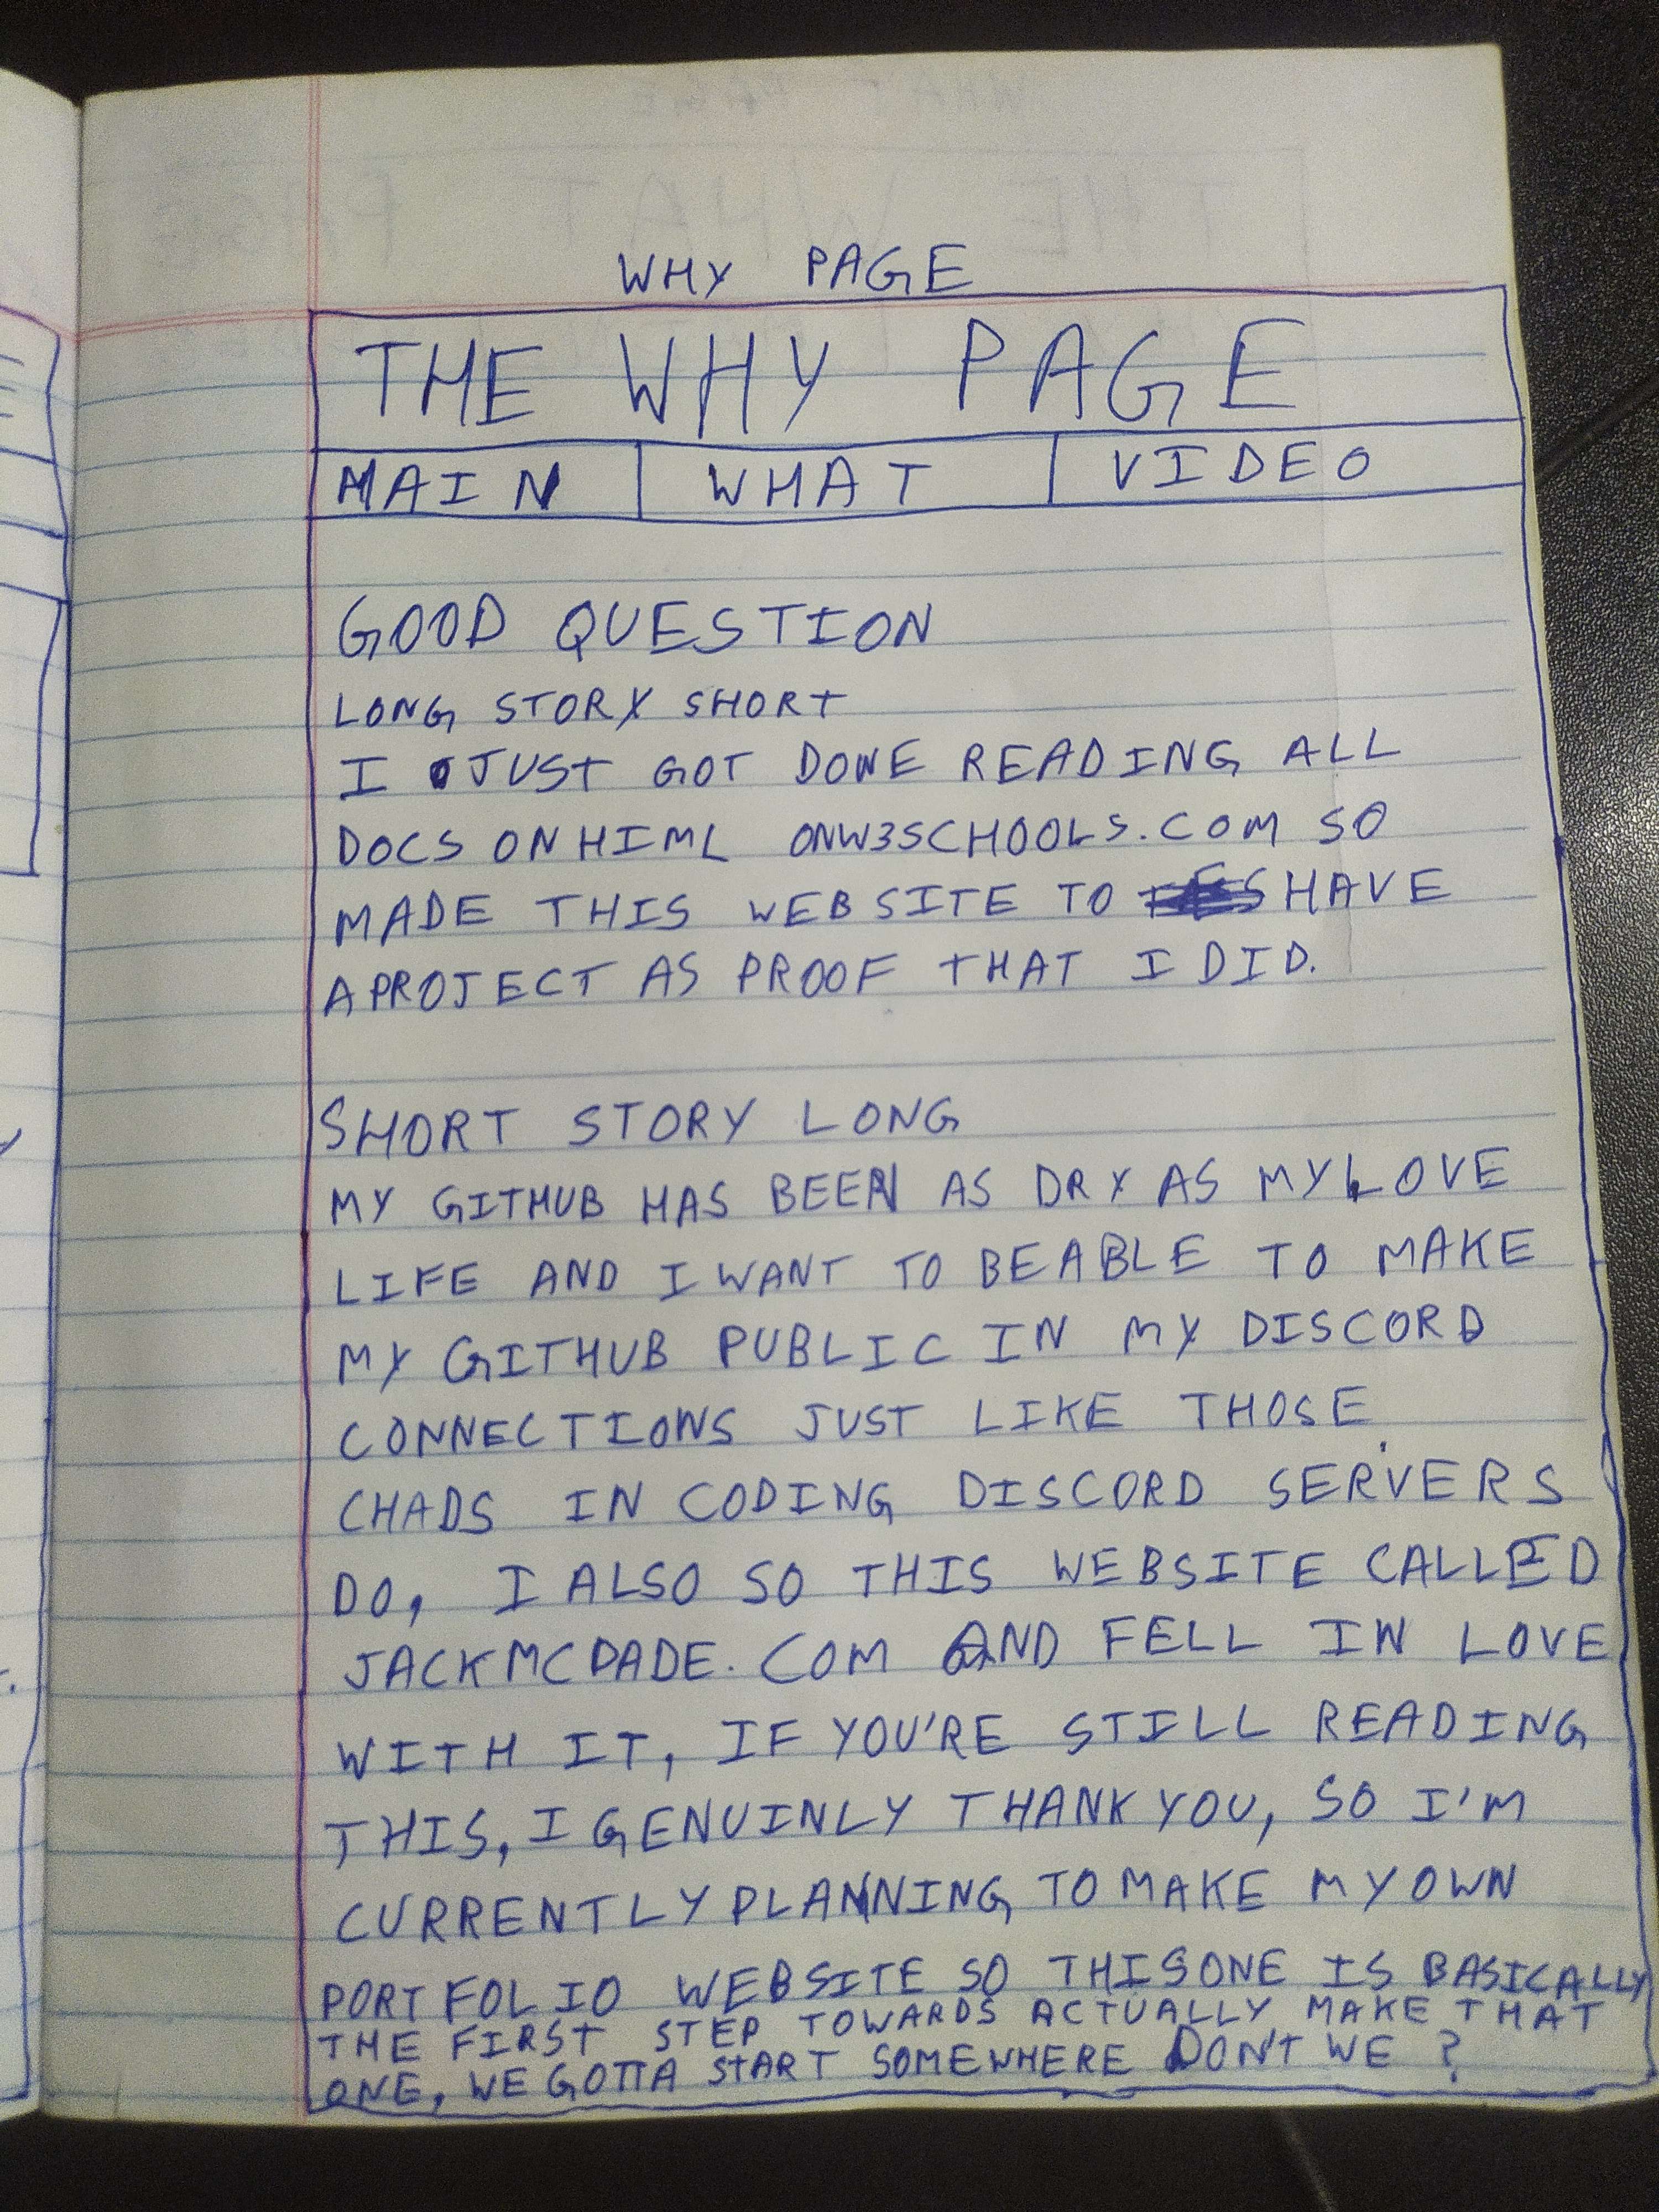 WHY PAGE
THE WHY PAGE
MAIN WHAT VIDEO
GOOD QUESTION
LONG STORY SHORT
I JUST GOT DONE READING ALL
DOCS ON HTML ON W3SCHOOLS.COM SO
MADE THIS WEBSITE TO HAVE
A PROJECT AS PROOF THAT I DID.
SHORT STORY LONG
MY GITHUB HAS BEEN AS DRY AS MY LOVE
LIFE AND I WANT TO BE ABLE TO MAKE
MY GITHUB PUBLIC IN MY DISCORD
CONNECTIONS JUST LIKE THOSE
CHADS IN CODING DISCORD SERVERS
DO, I ALSO SO THIS WEBSITE CALLED
JACKMCDADE.COM AND FELL IN LOVE
WITH IT, IF YOU'RE STILL READING
THIS, I GENUINLY THANK YOU, SO I'M
CURRENTLY PLANNING TO MAKE MY OWN
PORTFOLIO WEBSITE SO THIS ONE IS BASICALLY
THE FIRST STEP TOWARDS ACTUALLY MAKE THAT
ONE, WE GOTTA START SOMEWHERE DON'T WE ?